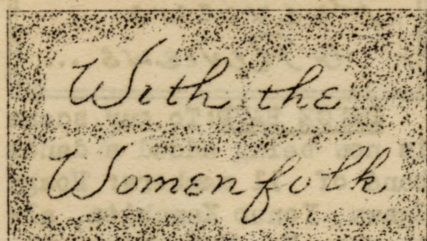 With the
Womenfolk